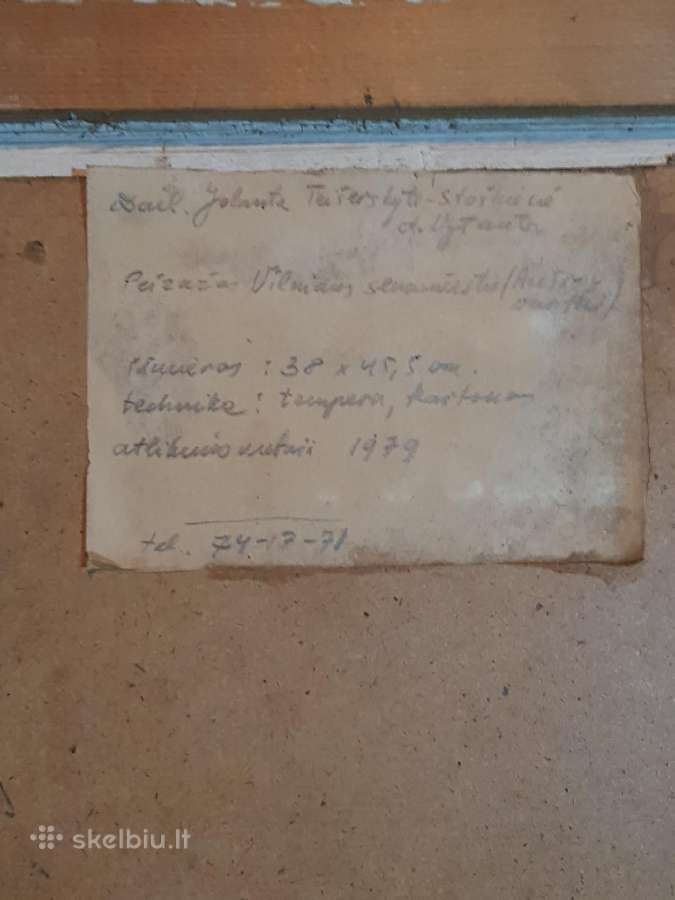 Dail. Jolanta Teišerskytė-Stoškienė
d. Vytauto
Peizažas Vilniaus senamiestis (
Išmeros : 38 x 45,5 cm.
technika : tempera, kartonas
atlikimo metai 1979
tel. 74-17-71
skelbiu.lt